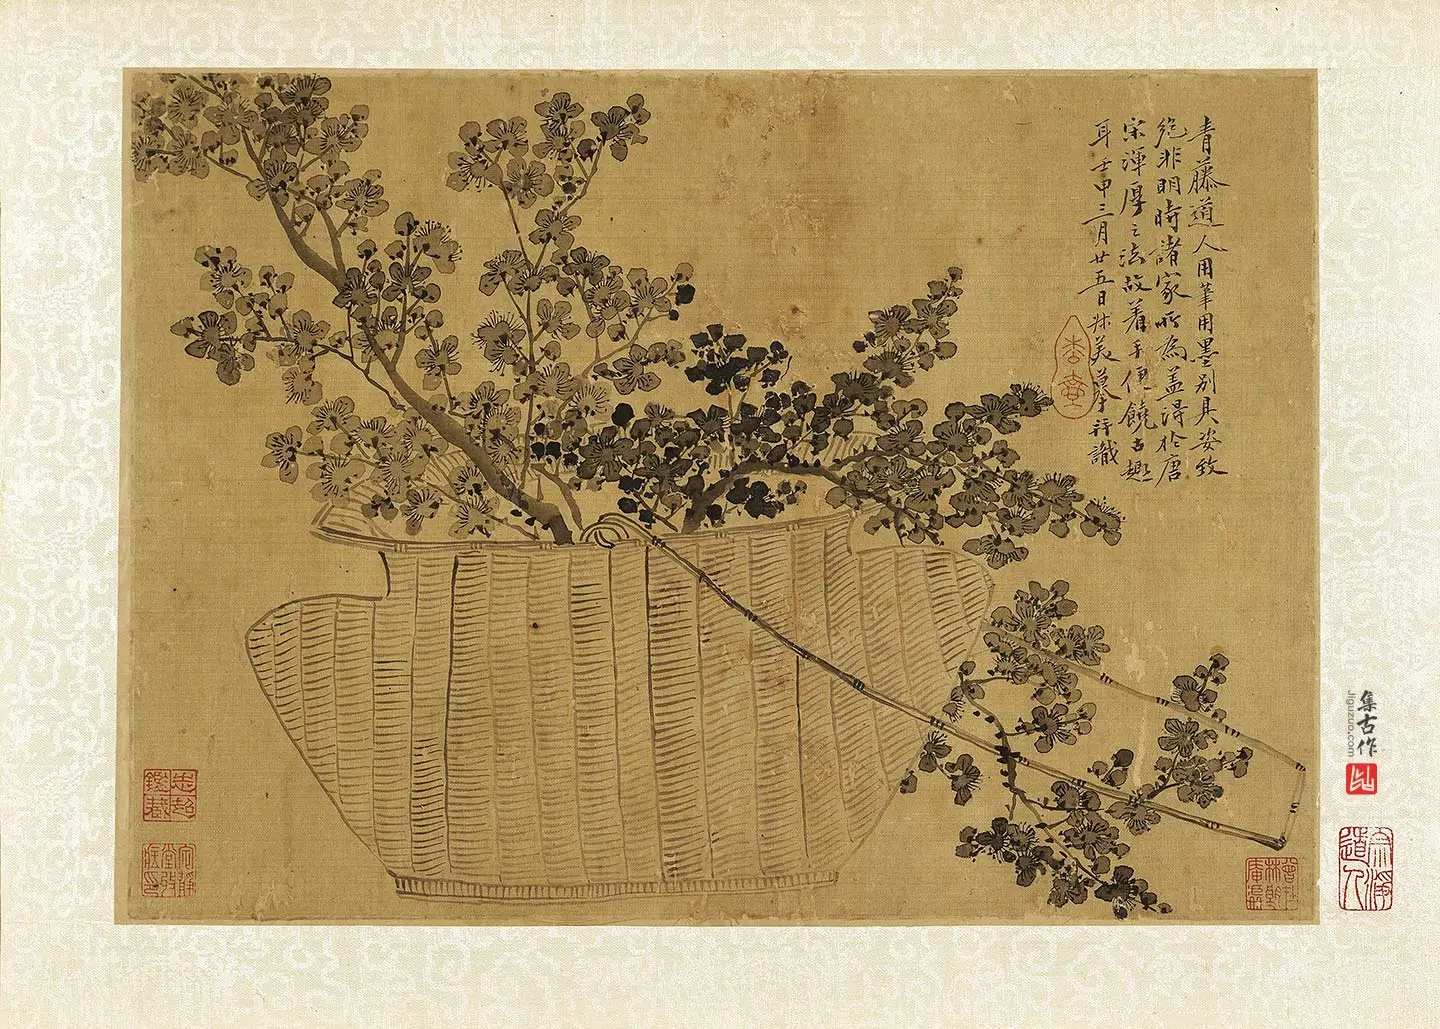 青藤道人用筆用墨別具姿致
絶非明時諸家所為蓋得於唐
宋渾厚之法故着手便饒古趣
耳壬申三月廿五日叔美摹并識
集古作
Jiguzuo.com